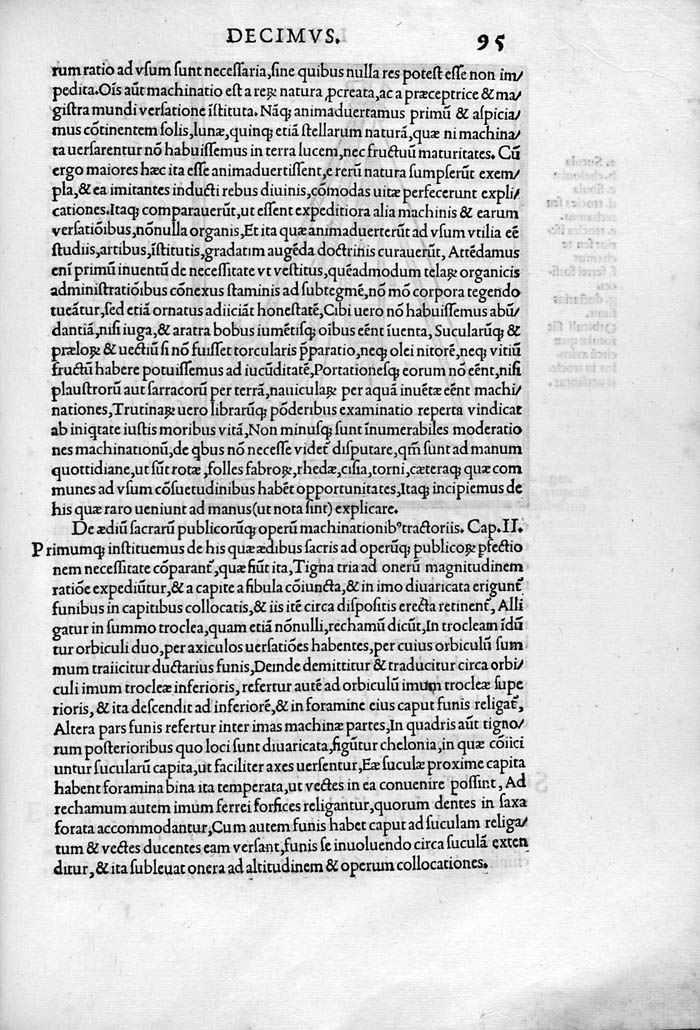 DECIMVS. 95
rum ratio ad vsum sunt necessaria, sine quibus nulla res potest esse non im/
pedita. Oīs aūt machinatio est a reꝝ natura ꝓcreata, ac a præceptrice & ma/
gistra mundi versatione īstituta. Nāqꝫ animaduertamus primū & aspicia/
mus cōtinentem solis, lunæ, quinqꝫ etiā stellarum naturā, quæ ni machina/
ta uersarentur nō habuissemus in terra lucem, nec fructuū maturitates. Cū
ergo maiores hæc ita esse animaduertissent, e rerū natura sumpserūt exem/
pla, & ea imitantes inducti rebus diuinis, cōmodas uitæ perfecerunt expli/
cationes. Itaqꝫ comparauerūt, ut essent expeditiora alia machinis & earum
versatiōibus, nōnulla organis, Et ita quæ animaduerterūt ad vsum vtilia eē
studiis, artibus, īstitutis, gradatim augēda doctrinis curauerūt, Attēdamus
enī primū inuentū de necessitate vt vestitus, quēadmodum telaꝝ organicis
administratiōibus cōnexus staminis ad subtegmē, nō mō corpora tegendo
tueātur, sed etiā ornatus adiiciāt honestatē, Cibi uero nō habuissemus abū/
dantiā, nisi iuga, & aratra bobus iumētisqꝫ oībus eēnt īuenta, Sucularūqꝫ &
præloꝝ & uectiū si nō fuisset torcularis p̄paratio, neqꝫ olei nitorē, neqꝫ vitiū
fructū habere potuissemus ad iucūditatē, Portationesqꝫ eorum nō eēnt, nisi
plaustrorū aut sarracorū per terrā, nauiculaꝝ per aquā inuētæ eēnt machi/
nationes, Trutinaꝝ uero librarūqꝫ pōderibus examinatio reperta vindicat
ab iniqtate iustis moribus vitā, Non minusqꝫ sunt īnumerabiles moderatio
nes machinationū, de qbus nō necesse videt̄ disputare, qm̄ sunt ad manum
quottidiane, ut sūt rotæ, folles fabroꝝ, rhedæ, cisia, torni, cæteraqꝫ quæ com
munes ad vsum cōsuetudinibus habēt opportunitates, Itaqꝫ incipiemus de
his quæ raro ueniunt ad manus (ut nota sint) explicare.
De ædiū sacrarū publicorūqꝫ operū machinationibꝰ tractoriis. Cap. II.
Primumqꝫ instituemus de his quæ ædibus sacris ad operūqꝫ publicoꝝ ꝑfectio
nem necessitate cōparant̄, quæ fiūt ita, Tigna tria ad onerū magnitudinem
ratiōe expediūtur, & a capite a fibula cōiuncta, & in imo diuaricata erigunt̄
funibus in capitibus collocatis, & iis itē circa dispositis erecta retinent̄, Alli
gatur in summo troclea, quam etiā nōnulli, rechamū dicūt, In trocleam īdū
tur orbiculi duo, per axiculos uersatiōes habentes, per cuius orbiculū sum
mum traiicitur ductarius funis, Deinde demittitur & traducitur circa orbi/
culi imum trocleæ inferioris, refertur autē ad orbiculū imum trocleæ supe
rioris, & ita descendit ad inferiorē, & in foramine eius caput funis religat̄,
Altera pars funis refertur inter imas machinæ partes, In quadris aūt tigno/
rum posterioribus quo loci sunt diuaricata, figūtur chelonia, in quæ cōiici
untur sucularū capita, ut faciliter axes uersentur, Eæ suculæ proxime capita
habent foramina bina ita temperata, ut vectes in ea conuenire possint, Ad
rechamum autem imum ferrei forfices religantur, quorum dentes in saxa
forata accommodantur, Cum autem funis habet caput ad suculam religa/
tum & vectes ducentes eam versant, funis se inuoluendo circa suculā exten
ditur, & ita subleuat onera ad altitudinem & operum collocationes.